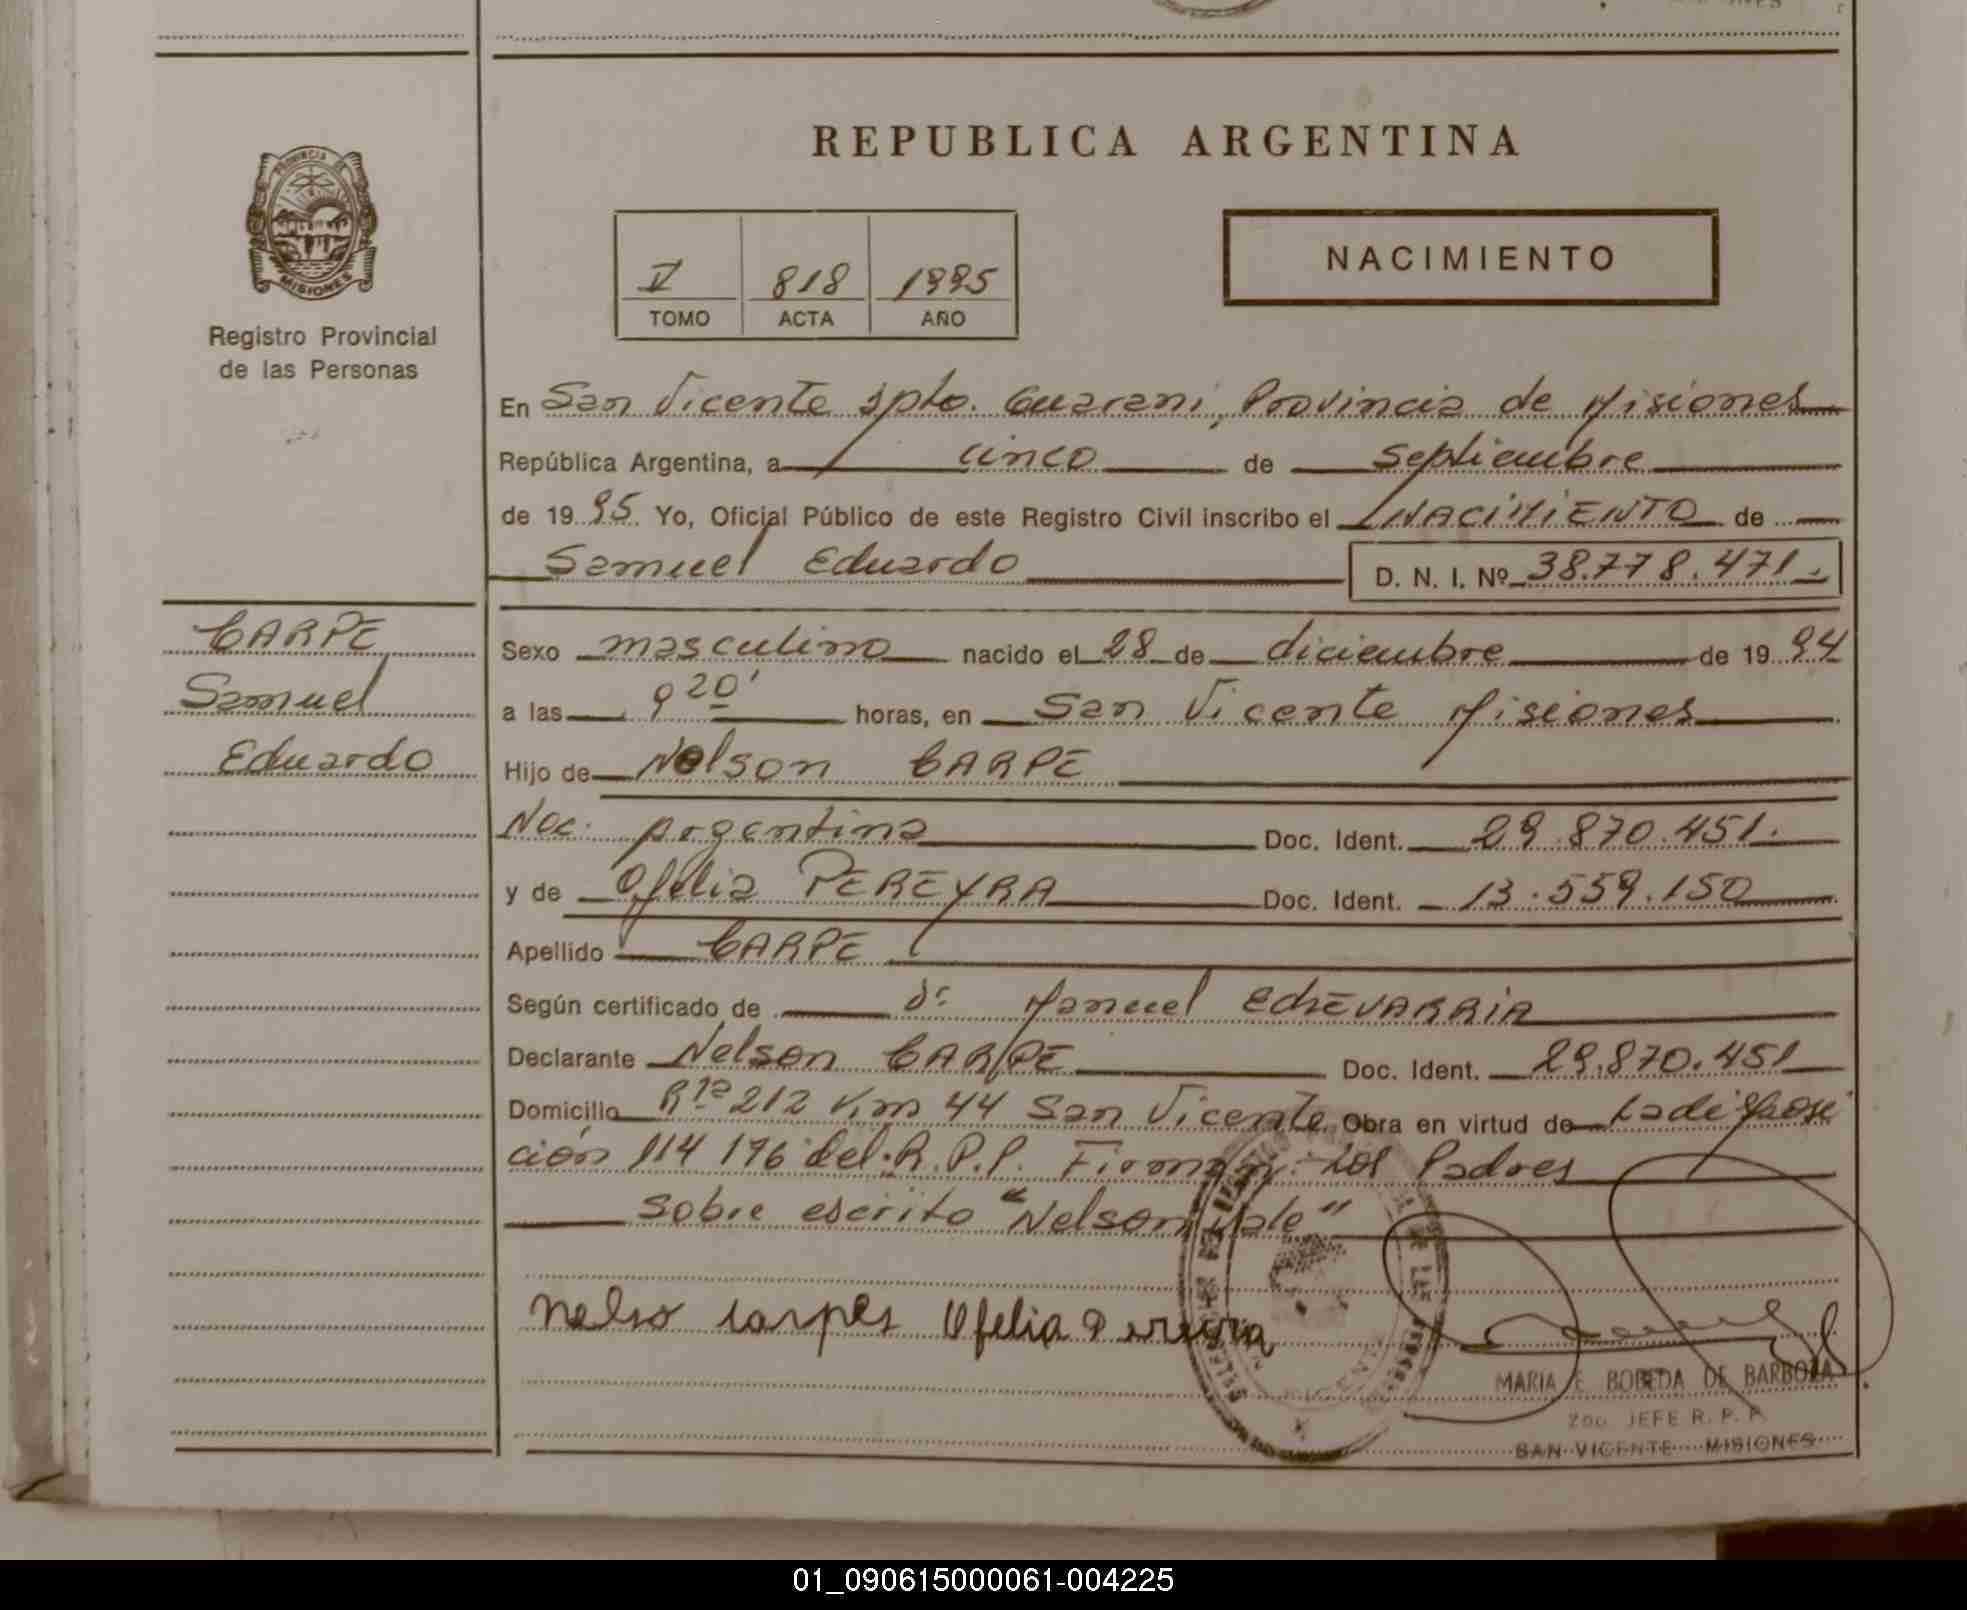 REPUBLICA ARGENTINA
PROVINCIA DE
MISIONES
Registro Provincial
de las Personas
V 818 1995
TOMO ACTA AÑO
NACIMIENTO
En San Vicente Dpto. Guarani, Provincia de Misiones
República Argentina, a cinco de Septiembre
de 1995 Yo, Oficial Público de este Registro Civil inscribo el NACIMIENTO de
Samuel Eduardo D. N. I. Nº 38.778.471.
CARPE
Samuel
Eduardo
Sexo masculino nacido el 28 de diciembre de 1994
a las 9 20' horas, en San Vicente Misiones
Hijo de Nelson CARPE
Nac. Argentina Doc. Ident. 29.870.451.
y de Ofelia PEREYRA Doc. Ident. 13.559.150
Apellido CARPE
Según certificado de Dr Manuel ECHEVARRIA
Declarante Nelson CARPE Doc. Ident. 29.870.451
Domicilio Rta 212 Km 44 San Vicente Obra en virtud de La disposi
ción 114 196 del R.P.P. Firman: Los Padres
Sobre escrito "Nelson Vale"
Nelso carpes Ofelia Pereyra
MARIA E. BOBEDA DE BARBOZA
2do. JEFE R. P. P.
SAN VICENTE MISIONES
01_090615000061-004225